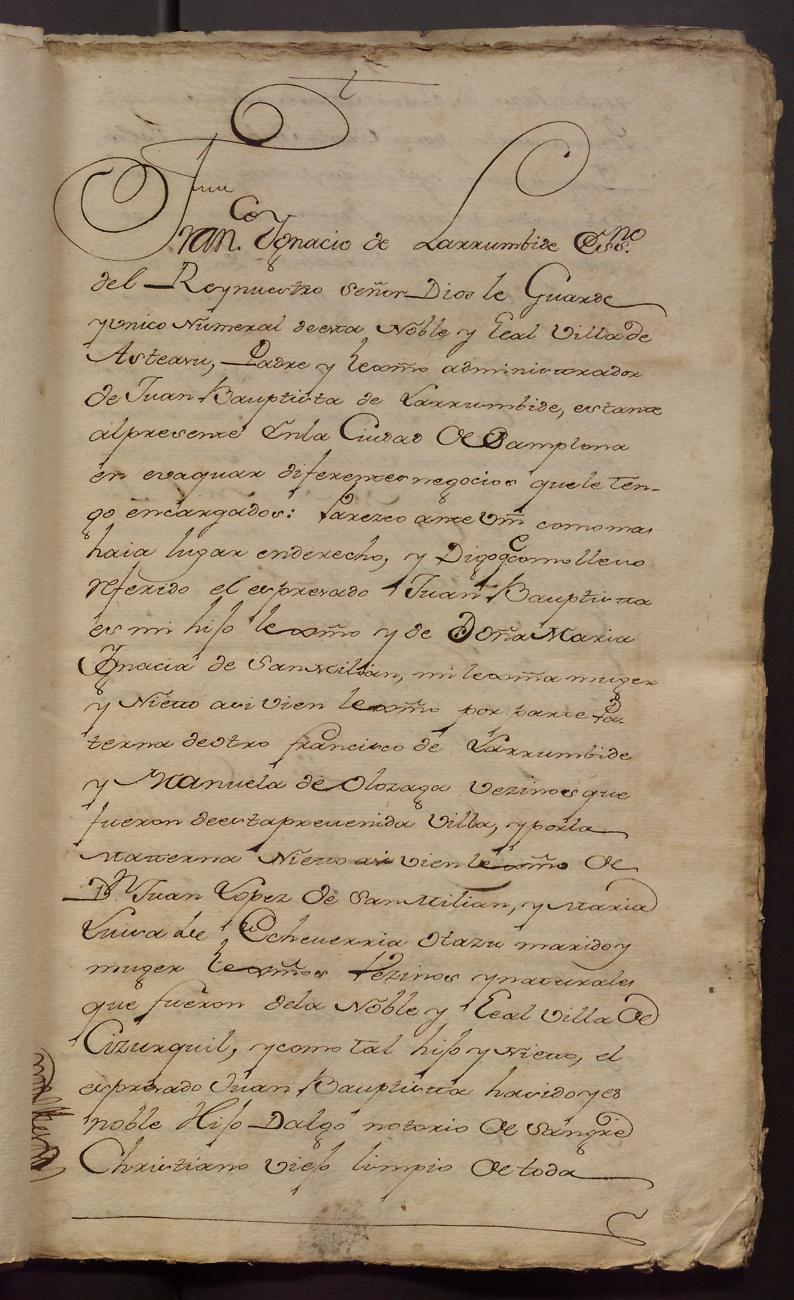 Fran.co Ygnacio de Larrumbide Essno.
del Rey nuestro Señor Dios le Guarde
y vnico Numeral de esta Noble y Leal Villa de
Asteasu, Padre y lexmo administrador
de Juan Bauptista de Larrumbide, estante
alpresente Enla Ciudad De Pamplona
en evaquar diferentes negocios que le ten-
go encargados: Parezco ante Vm como mas
haia lugar enderecho, y Digo q como llevo
referido el espresado Juan Bauptista
es mi hijo lexmo y de Doña Maria
Ygnacia de San Milian, mi lexma muger
y Nieto asi vien lexmo por parte Pa-
terna de otro francisco de Larrumbide
y Manuela de Olozaga vezinos que
fueron de esta prevenida Villa, y por la
Materna Nieto asi vien lexmo De
Dn Juan Lopez de San Milian, y Maria
Luisa de Echeverria Otazu marido y
muger lexmos vezinos y naturales
que fueron dela Noble y Leal Villa De
Cizurquil, y como tal hijo y Nieto, el
espresado Juan Bauptista ha sido y es
noble Hijo Dalgo notorio De Sangre
Christiano viejo limpio De toda